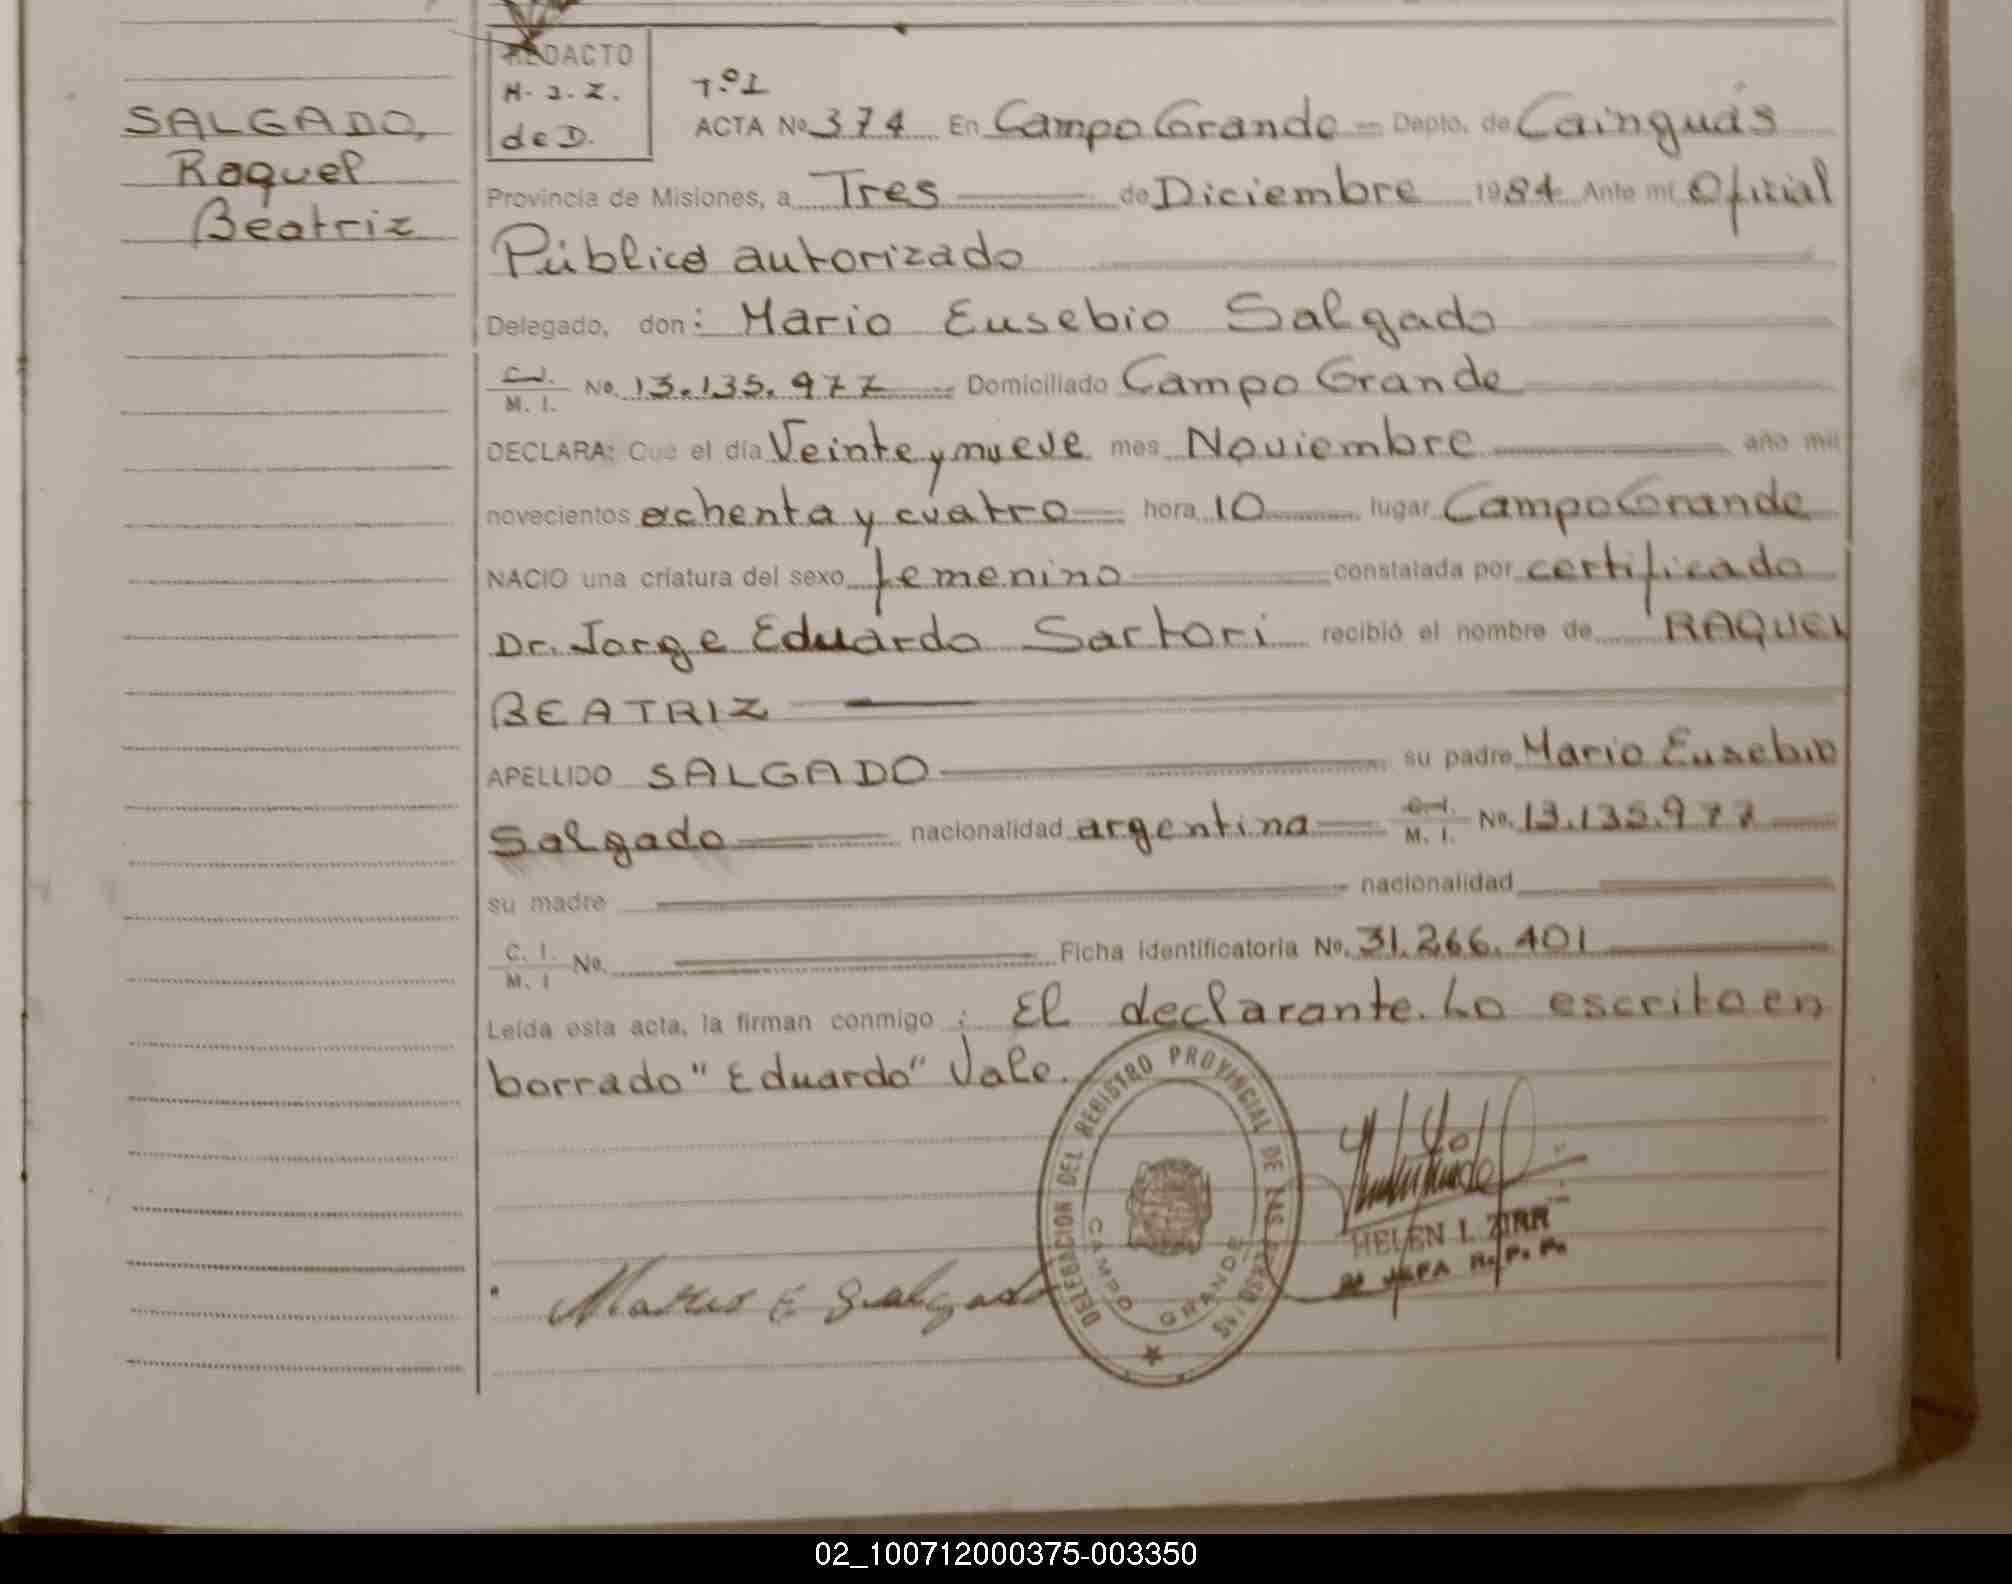 SALGADO,
Raquel
Beatriz
REDACTO
H. I. Z.
de D.
Tº I
ACTA No 374 En Campo Grande Depto. de Cainguás
Provincia de Misiones, a Tres de Diciembre 1984 Ante mí Oficial
Público autorizado
Delegado, don: Mario Eusebio Salgado
C. I. / M. I. No. 13.135.977 Domiciliado Campo Grande
DECLARA: Que el día Veinte y nueve mes Noviembre año mil
novecientos ochenta y cuatro hora 10 lugar Campo Grande
NACIO una criatura del sexo femenino constatada por certificado
Dr. Jorge Eduardo Sartori recibió el nombre de RAQUEL
BEATRIZ
APELLIDO SALGADO su padre Mario Eusebio
Salgado nacionalidad argentina C. I. / M. I. No. 13.135.977
su madre nacionalidad
C. I. / M. I No. Ficha identificatoria No. 31.266.401
Leída esta acta, la firman conmigo : El declarante. Lo escrito en
borrado "Eduardo" Vale.
DELEGACION DEL REGISTRO PROVINCIAL DE LAS PERSONAS
CAMPO GRANDE
Mario E Salgado
HELEN I. ZIRR
JEFA R. P. P.
02_100712000375-003350